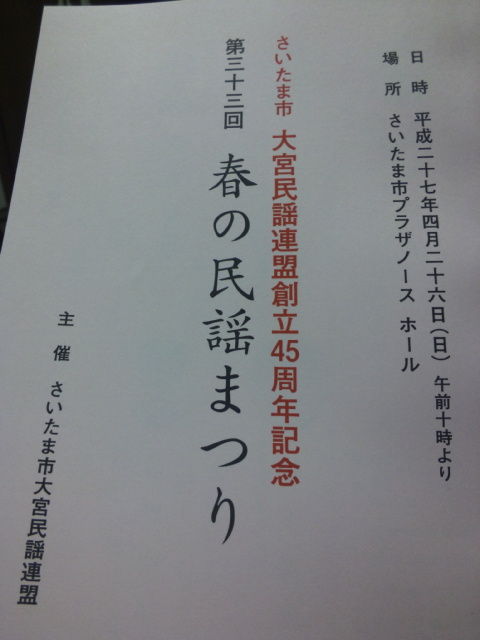 日時 平成二十七年四月二十六日(日) 午前十時より
場所 さいたま市プラザノース ホール
さいたま市 大宮民謡連盟創立45周年記念
第三十三回 春の民謡まつり
主催 さいたま市大宮民謡連盟